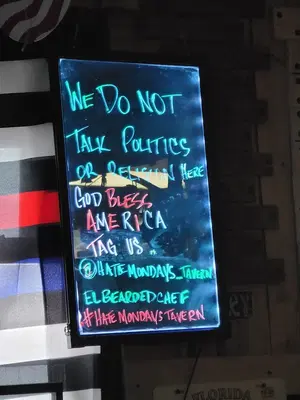 WE DO NOT
TALK POLITICS
OR RELIGION HERE
GOD BLESS
AMERICA
TAG US
@HATEMONDAYS_TAVERN
ELBEARDEDCHEF
#HATEMONDAYSTAVERN
FLORIDA